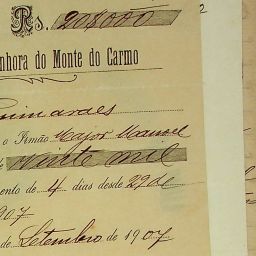 Rs. 20$000
2
nhora do Monte do Carmo
uimarães
o Irmão Major Manoel
vinte mil
ento de 4 dias desde 29 de
907
de Setembro de 1907